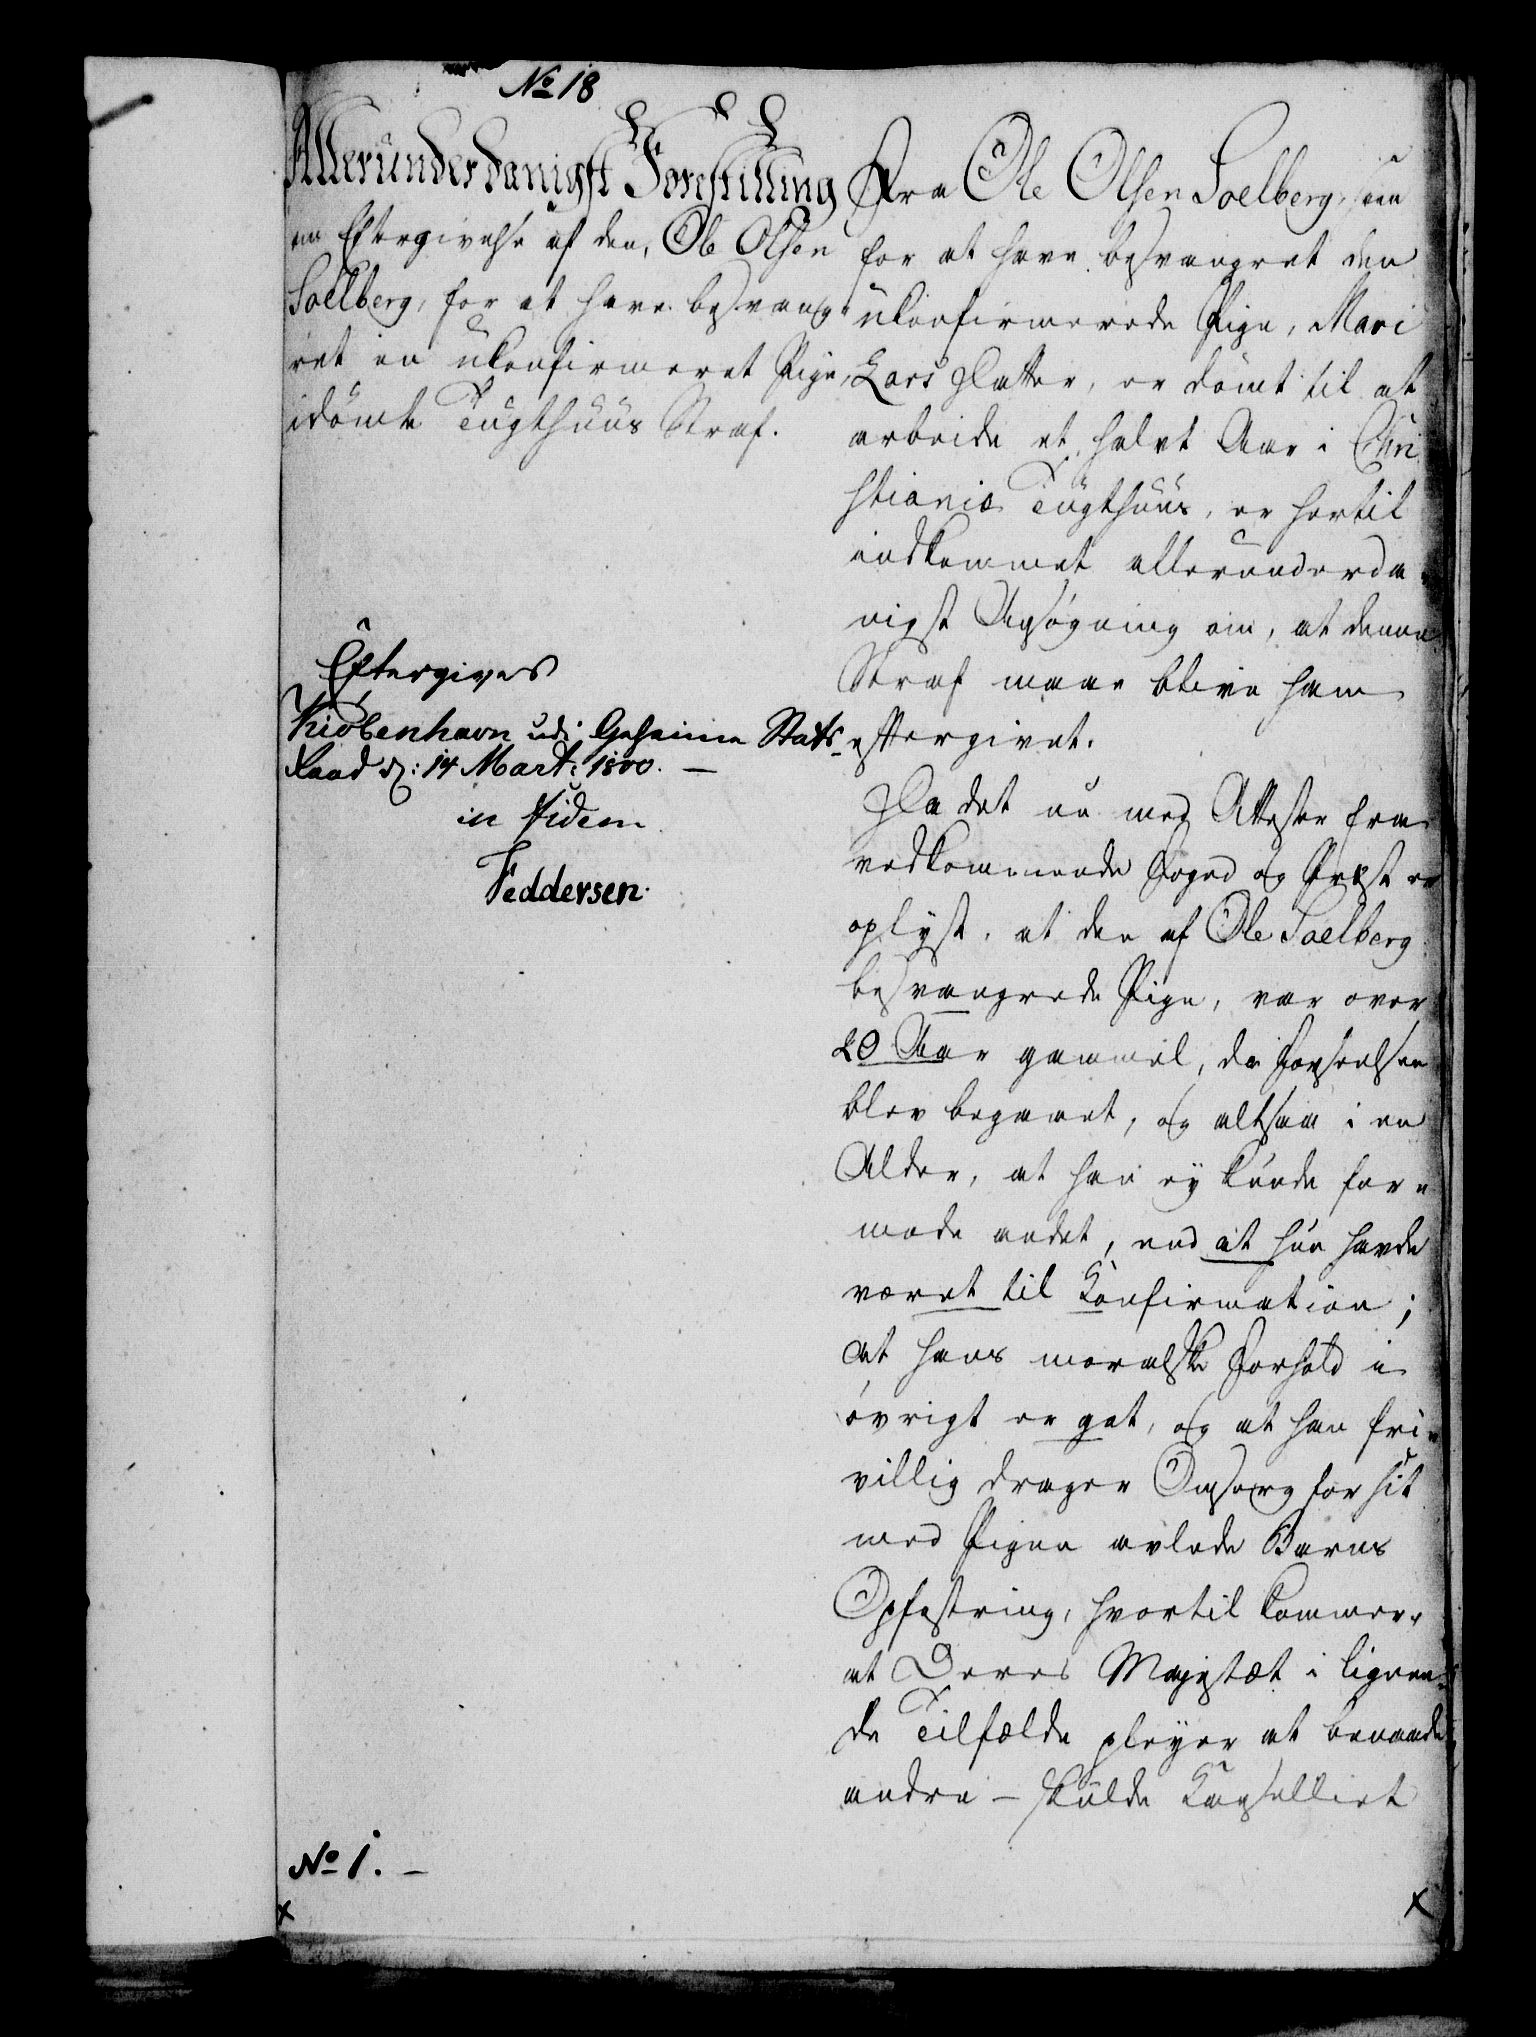 No 18
Allerunderdanigst Forestilling
om Eftergivelse af den, Ole Olsen
Soelberg, for at have besvang-
ret en ukonfirmeret Pige,
idömte Tugthuus Straf.
Eftergives
Kiöbenhavn udi Geheime Stats-
Raad d: 14 Mart: 1800. —
in fidem
Feddersen.
No 1. —
Fra Ole Olsen Soelberg, som
for at have besvangret den
ukonfirmerede Pige, Mari
Lars Datter, er dömt til at
arbeide et halvt Aar i Chri
stiania Tugthuus, er hertil
indkommet allerunderda-
nigst Ansögning om, at denne
Straf maae blive ham
eftergivet.
Da det nu med Attester fra
vedkommende Foged og Præst er
oplyst, at den af Ole Soelberg
besvangrede Pige, var over
20 Aar gammel, da Forseelsen
blev begaaet, og altsaa i en
Alder, at han ey kunde for-
mode andet, end at hun havde
været til Konfirmation;
at hans moralske Forhold i
övrigt er got, og at han fri-
villig drager Omsorg for sit
med Pigen avlede Barns
Opfostring, hvortil kommer,
at Deres Majestæt i lignen-
de Tilfælde pleyer at benaade
andre — skulde Kancelliet